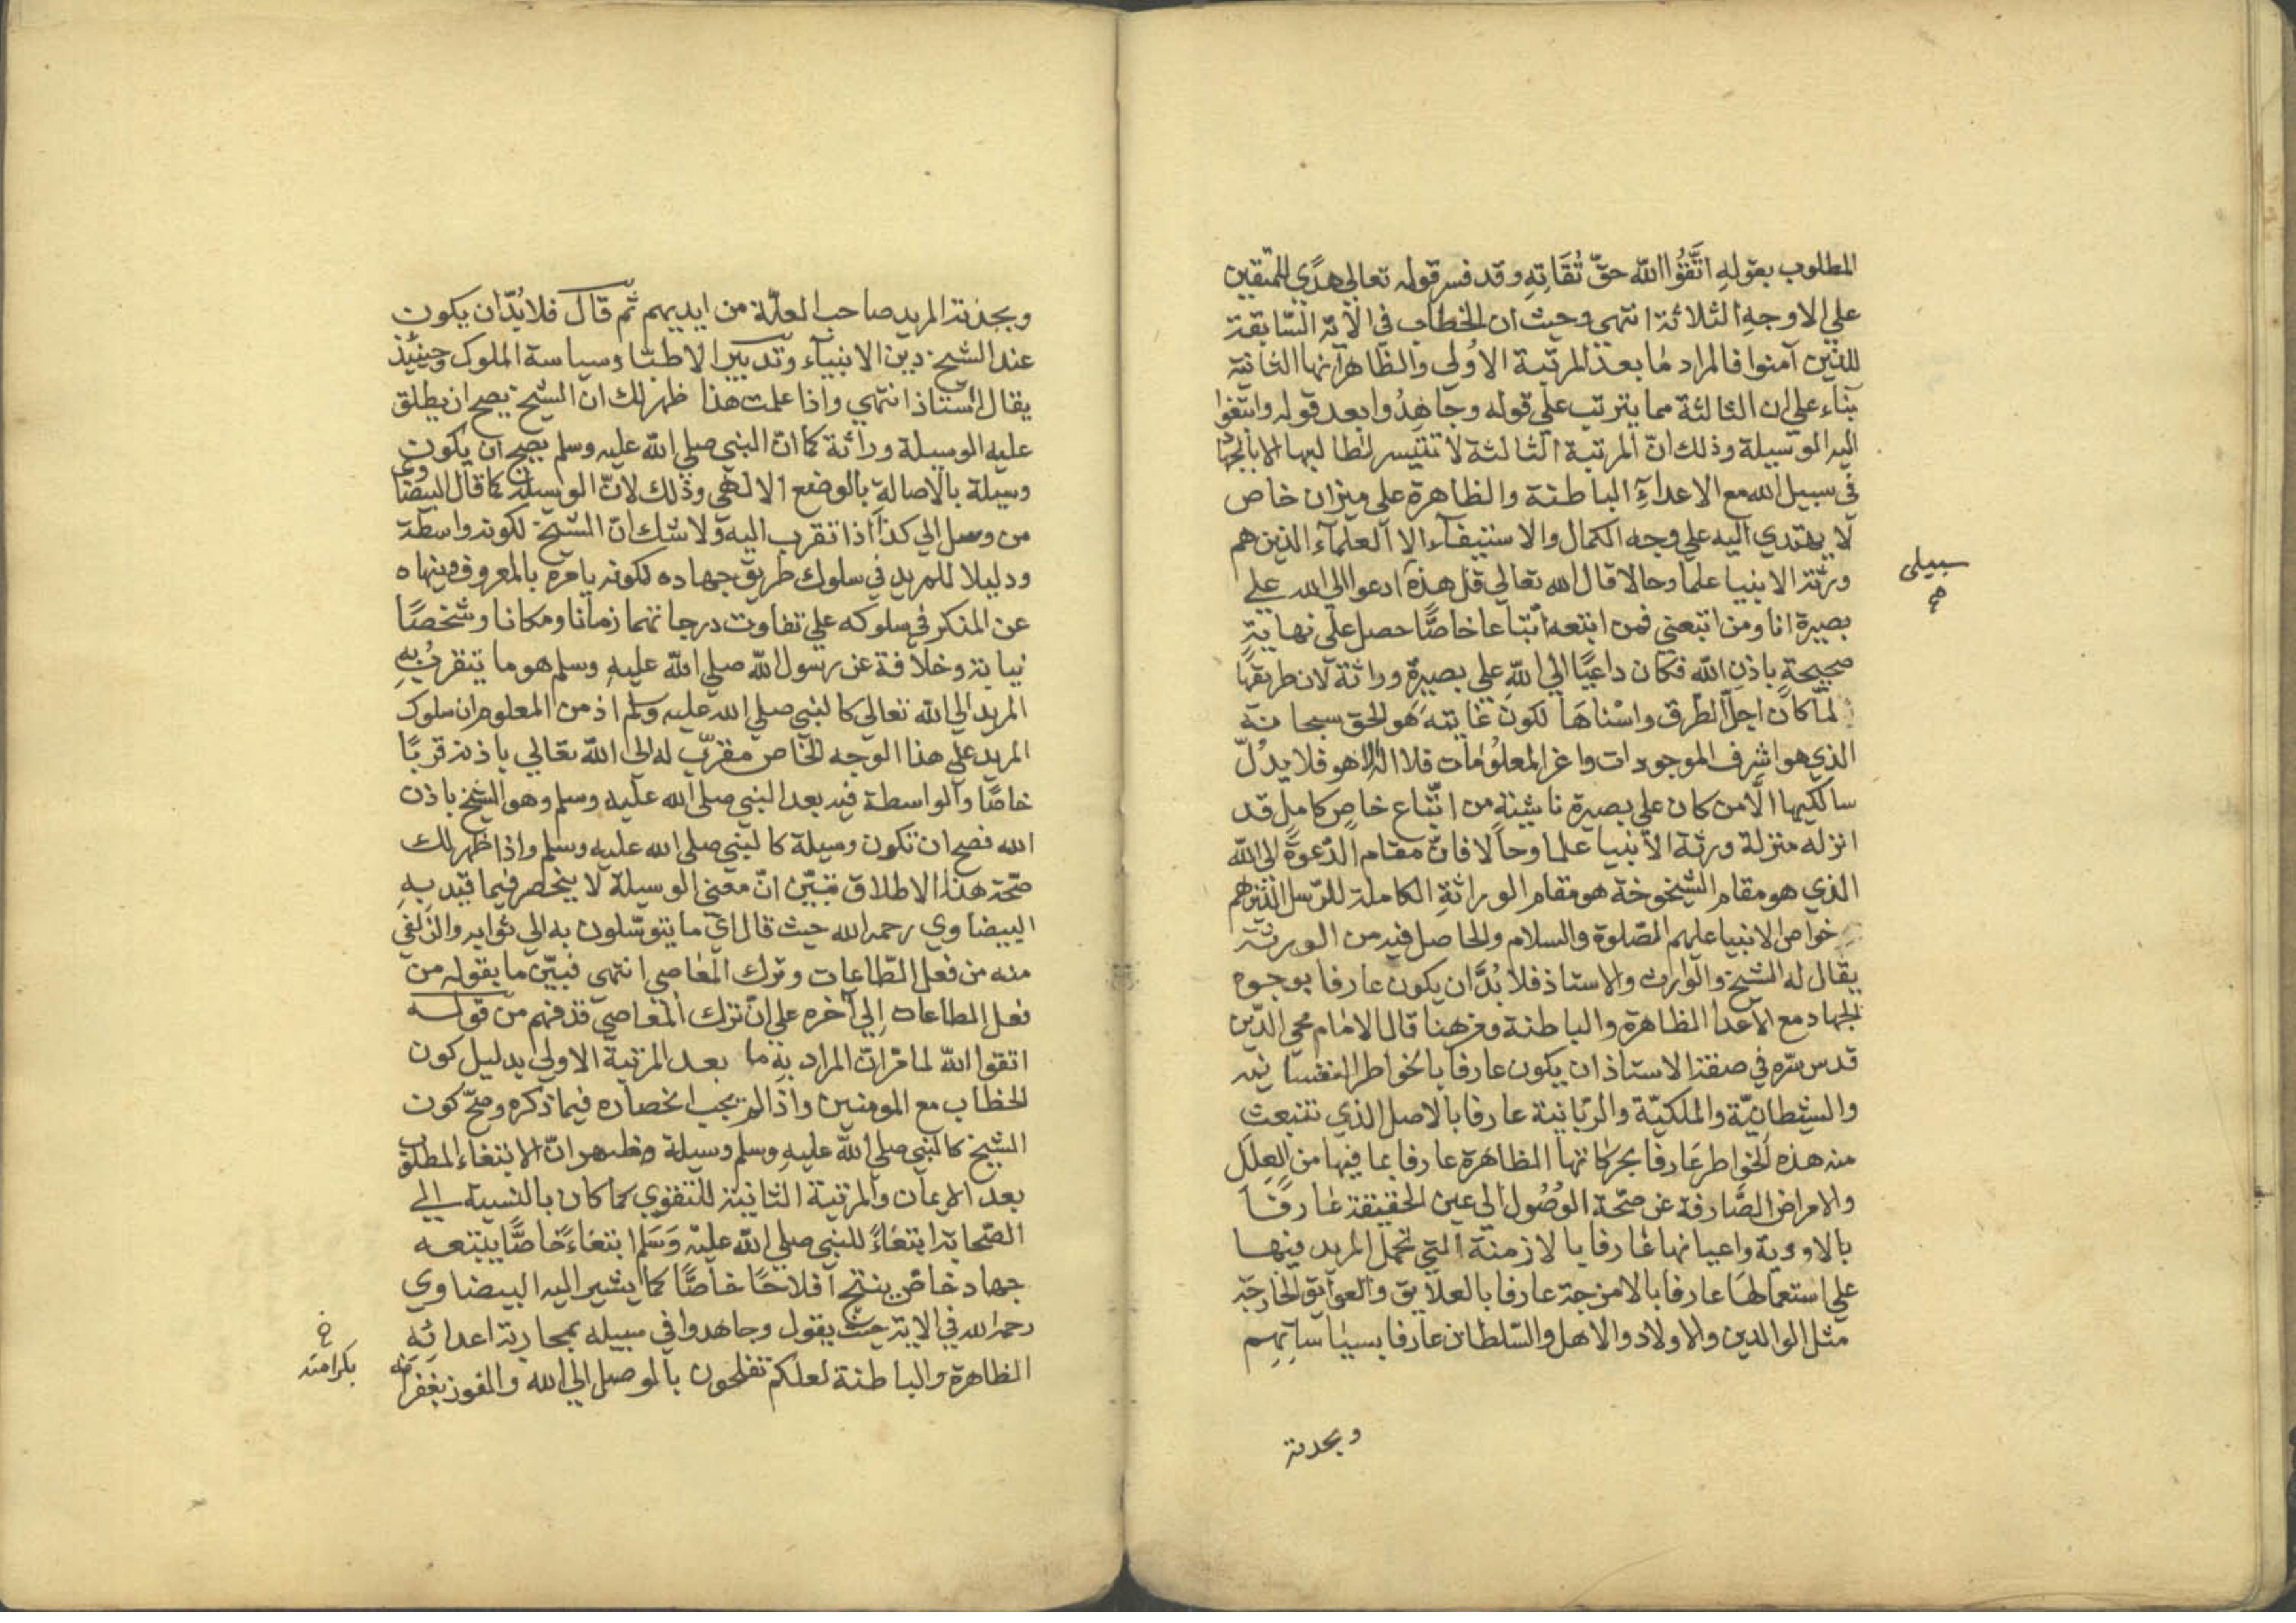 المطلوب بقوله اتَّقُوا الله حقّ تُقَاتِهِ وقد فسر قوله تعالى هدًى للمتقين
علي الاوجه الثلاثة انتهي وحيث ان الخطاب في الآية السّابقة
للذين آمنوا فالمراد مٰا بعد المرتبة الاولي والظاهر انها الثانية
بناء علي ان الثالثة مما يترتب علي قوله وجاهِدُوا بعد قوله وابتغوا
اليه الوسيلة وذلك انّ المرتبة الثالثة لا تتيسر لطالبيها الا بالجهاد
في سبيل الله مع الاعدآءِ الباطنة والظاهرة علي ميزان خاص
لا يهتدي اليه علي وجه الكمال والاستيفآء الا العلمآء الذين هم
ورثة الانبيا علما وحالا قال الله تعالي قل هذه ادعوا الي الله علي
سبيلى
صح
بصيرة انا ومن اتبعني فمن اتبعه اتّباعا خاصًّا حصل علي نهايةٍ
صحيحةٍ باذن الله فكان داعيًا الي اللهِ علي بصيرةٍ وراثة لان طريقها
لمّا كان اجلّ الطرق واسْناهَا لكون غايته هو الحق سبحانه
الذي هو اشرف الموجودات واعز المعلوُمٰات فلا اله الا هو فلا يدُلّ
سالكيها الّا من كان علي بصيرة ناشئةٍ من اتّباع خاصٍ كاملٍ قد
انزله منزلة ورثة الانبيا علما وحالا فانّ مقام الدّعوةِ الي الله
الذي هو مقام الشيخوخة هو مقام الوراثةِ الكاملة للرّسل الذين هم
خواص الانبيا عليهم الصّلوة والسلام والحاصل فيه من الورثة
يقال له الشيخ والوارث والاستاذ فلا بُدَّ ان يكون عارفا بوجوه
الجهاد مع الاعدا الظاهرة والباطنة ومن هنا قال الامٰام محي الدّين
قدس سّره في صفة الاستاذ ان يكون عارفا بالخواطر النفسانيه
والشيطانيّة والملكيّة والربّانية عارفا بالاصل الذي تنبعث
منه هذه الخواطر عَارفا بحركاتها الظاهرة عارفا بما فيها من العِللِ
والامراض الصَّارفة عن صحّة الوُصُول الي عين الحقيقة عَارفًا
بالاودية واعيانها عَارفا بالازمنة التي تحمل المريد فيها
علي استعمالهَا عارفا بالامزجة عارفا بالعلايق والعوايق الخارجّة
مثل الوالدين والاولاد والاهل والسّلطان عارفا بسيٰاساتِهِم
وبجذبة
وبجذبة المريد صاحب العلّة من ايديهم ثم قال فلا بُدّ ان يكون
عند الشيخ دين الانبيآء وتدبير الاطبّا وسياسة الملوك وحينئذ
يقال استاذ انتهي واذا علمت هذا ظهر لك ان الشيخ يصح ان يطلق
عليه الوسيلة وراثة كما انّ النبي صلي الله عليه وسلم يصح ان يكون
وسيلة بالاصالةِ بالوضع الالهي وذلك لانّ الوسيلة كما قال البيضاوي
من وسل الي كذا اذا تقرب اليه ولا شك انّ الشيخ لكونه واسطة
ودليلا للمريد في سلوك طريق جهاده لكونه يامره بالمعروف وينهاه
عن المنكر في سلوكه علي تفاوت درجاتهما زمانا ومكانا وشخصًا
نيابة وخلافة عن رسول الله صلي الله عليهِ وسلم هو ما يتقربُ بهِ
المريد الي الله تعالي كالنبي صلي الله عليه وسلم اذ من المعلوم ان سلوك
المريد علي هذا الوجه الخاص مقرّب له الي الله تعالي باذنه قربًا
خاصًا والواسطة فيه بعد النبي صلي الله عليه وسلم وهو الشيخ باذن
الله فصح ان تكون وسيلة كالنبي صلي الله عليه وسلم واذا ظهر لك
صّحة هذا الاطلاق تبيّن انّ معني الوسيلة لا ينحصر فيما قيّد بهِ
البيضاوي رحمه الله حيث قال اي ما يتوسّلون به الي ثوابه والزّلفي
منه من فعل الطّاعات وترك المٰعاصي انتهي فبيّن ما بقوله من
فعل الطاعات اِلي آخره علي انّ ترك المعاصي قد فهم من قوله
اتقوا اللهَ لما مّر انّ المراد به ما بعد المرتبة الاولي بدليل كون
الخطاب مع المومنين واذا لم يجب انحصاره فيما ذكره وصحّ كون
الشيخ كالنبي صلي اللهُ عليهِ وسلم وسيلة وظهر انّ الابتغاء المطلوب
بعد الايمان والمرتبة الثانية للتقوي كما كان بالنسبة الي
الصّحابة ابتغاءً للنبي صلي اللهُ عليه وَسَلم ابتغاءً خاصًّا يتبعه
جهاد خاصّ ينتج افلاحًا خاصًّا كما يشير اليه البيضاوي
رحمه الله في الاية حيث يقول وجاهدوا في سبيله بمحاربة اعدائهِ
الظاهرة والباطنة لعلكم تفلحون بالوصل الي الله والفوز
خ
بكرامته